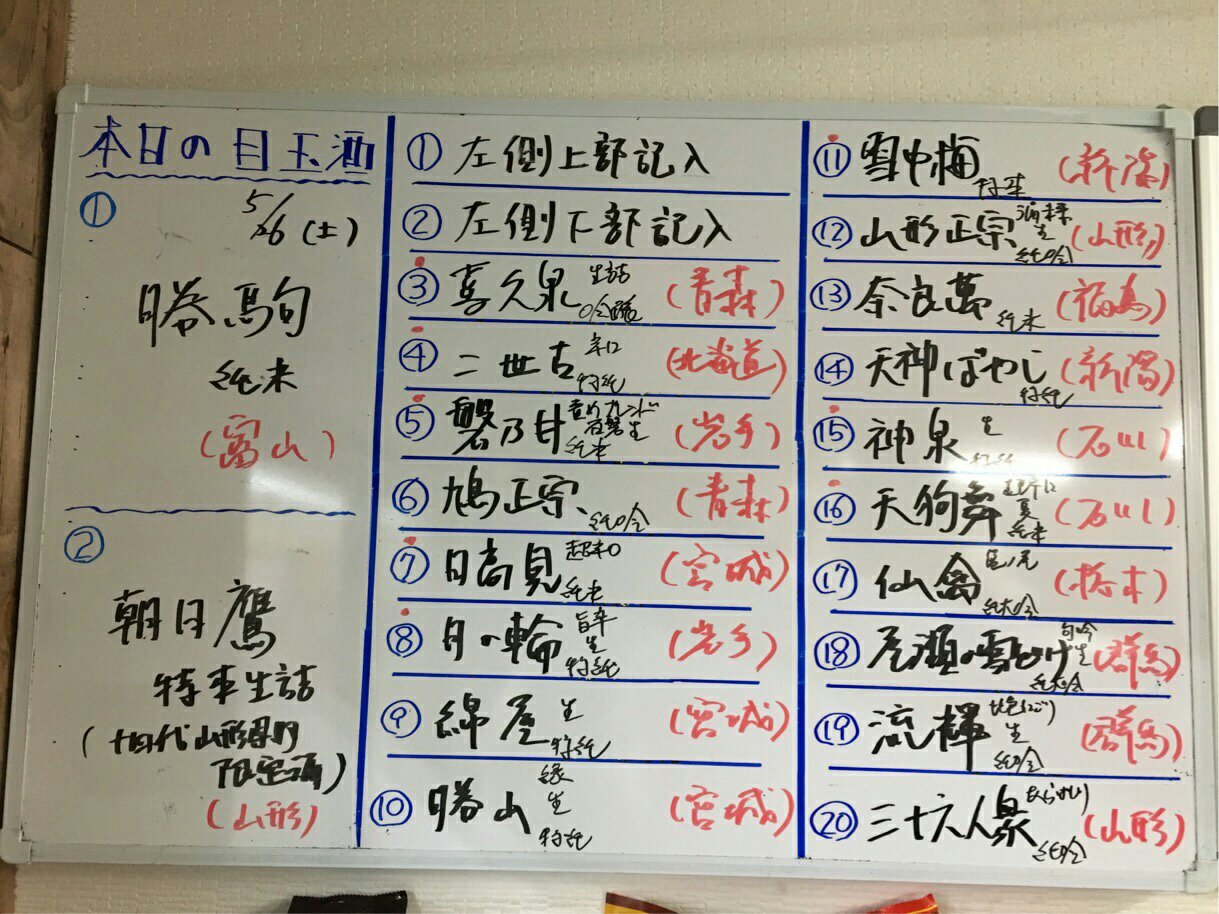 本日の目玉酒
①
5/26(土)
勝駒
純米
(富山)
②
朝日鷹
特本生詰
(十四代山形県内
限定酒)
(山形)
① 左側上部記入
② 左側下部記入
③ 喜久泉 生詰 吟醸 (青森)
④ 二世古 辛口 特純 (北海道)
⑤ 磐乃井 責めブレンド 生 純米 (岩手)
⑥ 鳩正宗 純吟 (青森)
⑦ 日高見 超辛口 純米 (宮城)
⑧ 月の輪 旨辛 生 特純 (岩手)
⑨ 綿屋 生 特純 (宮城)
⑩ 勝山 縁 生 特純 (宮城)
⑪ 雪中梅 特本 (新潟)
⑫ 山形正宗 酒未来 生 純吟 (山形)
⑬ 奈良萬 純米 (福島)
⑭ 天神ばやし 特純 (新潟)
⑮ 神泉 生 特純 (石川)
⑯ 天狗舞 超辛口 夏 純米 (石川)
⑰ 仙禽 亀ノ尾 純大吟 (栃木)
⑱ 尾瀬の雪どけ 旬吟 生 純大吟 (群馬)
⑲ 流輝 桃色にごり 生 純吟 (群馬)
⑳ 三十六人衆 純吟 (山形)